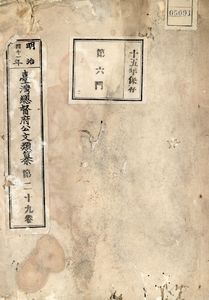 05091
十五年保存
第六門
明治
四十一年
臺灣總督府公文類纂
第二十九卷